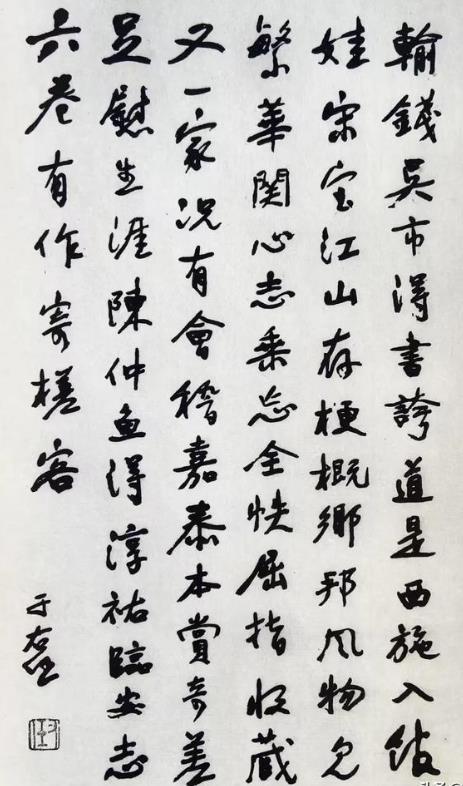 輸錢吳市得書誇道是西施入館
娃宋室江山存梗概鄉邦風物見
繁華関心志乘忘全帙屈指收藏
又一家況有會稽嘉泰本賞奇差
足慰生涯陳仲魚得淳祐臨安志
六卷有作寄槎客
于右任